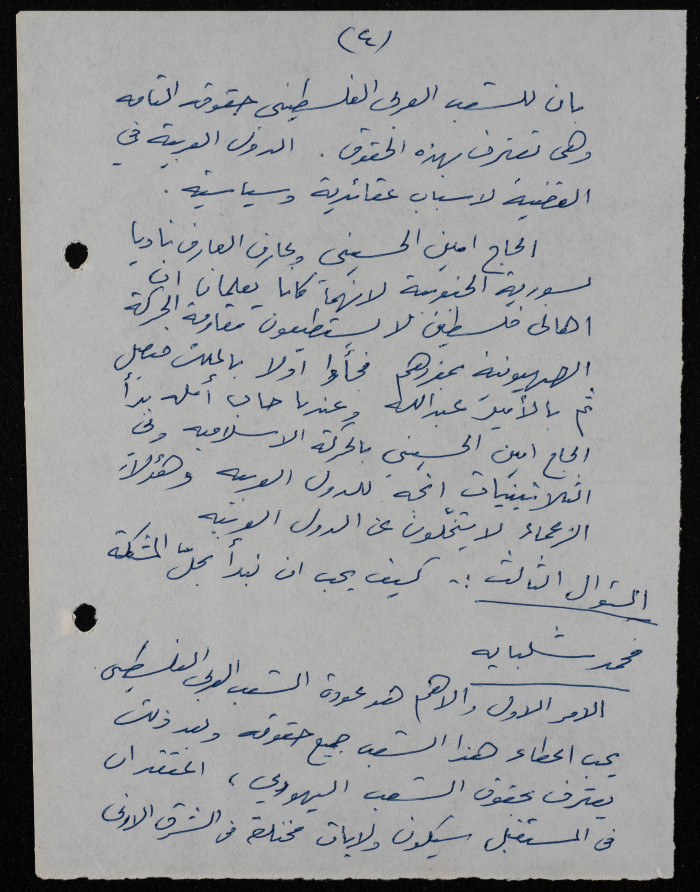 (٤)
بان للشعب العربي الفلسطيني حقوقه التامه
وهي تعترف بهذه الحقوق . الدول العربية في
القضية لاسباب عقائدية وسياسية .
الحاج امين الحسيني وعارف العارف ناديا
بسورية الجنوبية لانهما كانا يعلمان ان
اهالي فلسطين لا يستطيعون مقاومة الحركة
الصهيونية بمفردهم فجأوا اولا بالملك فيصل
ثم بالأمير عبدالله وعندما خاب أمله بدأ
الحاج امين الحسيني بالحركة الاسلاميه وفي
الثلاثينيات اتجه للدول العربيه وهؤلاء
الزعماء لا يتخلّون عن الدول العربيه
السؤال الثالث :- كيف يجب ان نبدأ بحلّ المشكلة
محمد شلبايه
الامر الاول والاهم هو عودة الشعب العربي الفلسطيني
يجب اعطاء هذا الشعب جميع حقوقه وبعد ذلك
يعترف بحقوق الشعب اليهودي ، اعتقد ان
في المستقبل سيكون ولايات مختلفة في الشرق الادنى